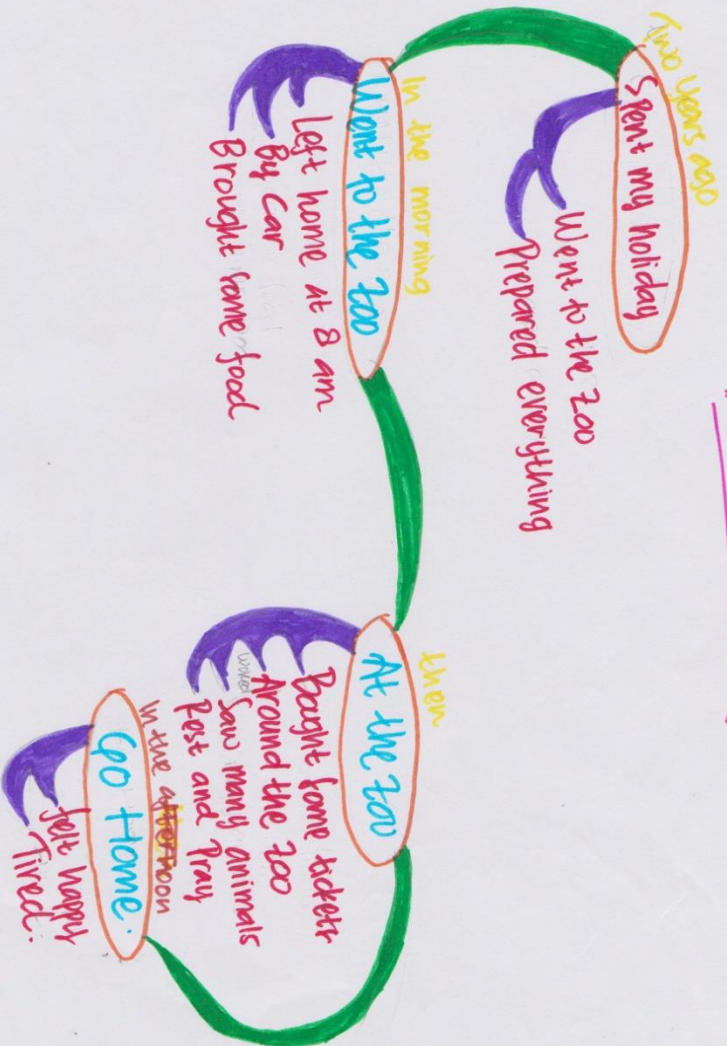 Two years ago
Spent my holiday
Went to the Zoo
Prepared everything
In the morning
Went to the Zoo
Left home at 8 am
By Car
Brought some food
then
At the Zoo
Bought some tickets
Around the Zoo
Saw many animals
Rest and Pray
In the afternoon
Go Home.
felt happy
Tired.